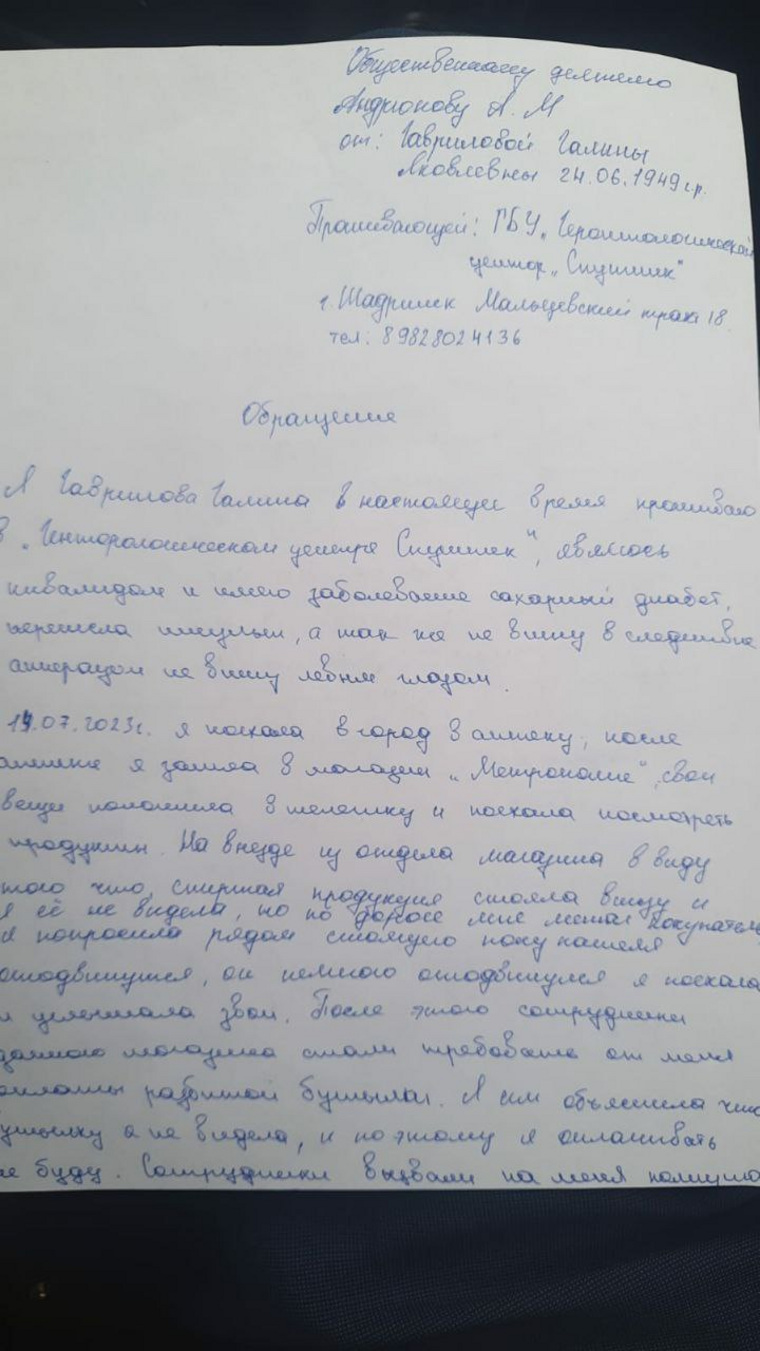 Общественному деятелю
Андронову А. М
от: Гавриловой Галины
Яковлевны 24.06.1949 г.р.
Проживающей: ГБУ „Геронтологический
центр „Спутник"
г. Шадринск Мальцевский тракт 18.
тел: 89828024136
Обращение
Я Гаврилова Галина в настоящее время проживаю
в „Генторологическом центре Спутник", являюсь
инвалидом и имею заболевание сахарный диабет,
перенесла инсульт, а так же не вижу в следствие
не вижу левым глазом.
14.07.2023г. я поехала в город в аптеку, после
аптеки я зашла в магазин „Метрополис", свои
вещи положила в тележку и поехала посмотреть
продукты. На выезде из отдела магазина в виду
того что, спиртная продукция стояла внизу и
я её не видела, но по дороге мне мешал покупатель
я попросила рядом стоящего покупателя
отодвинутся, он немного отодвинулся я поехала
и услышала звон. После этого сотрудники
данного магазина стали требовать от меня
оплаты разбитой бутылки. Я им объяснила что
бутылку я не видела, и поэтому я оплачивать
не буду. Сотрудники вызвали на меня